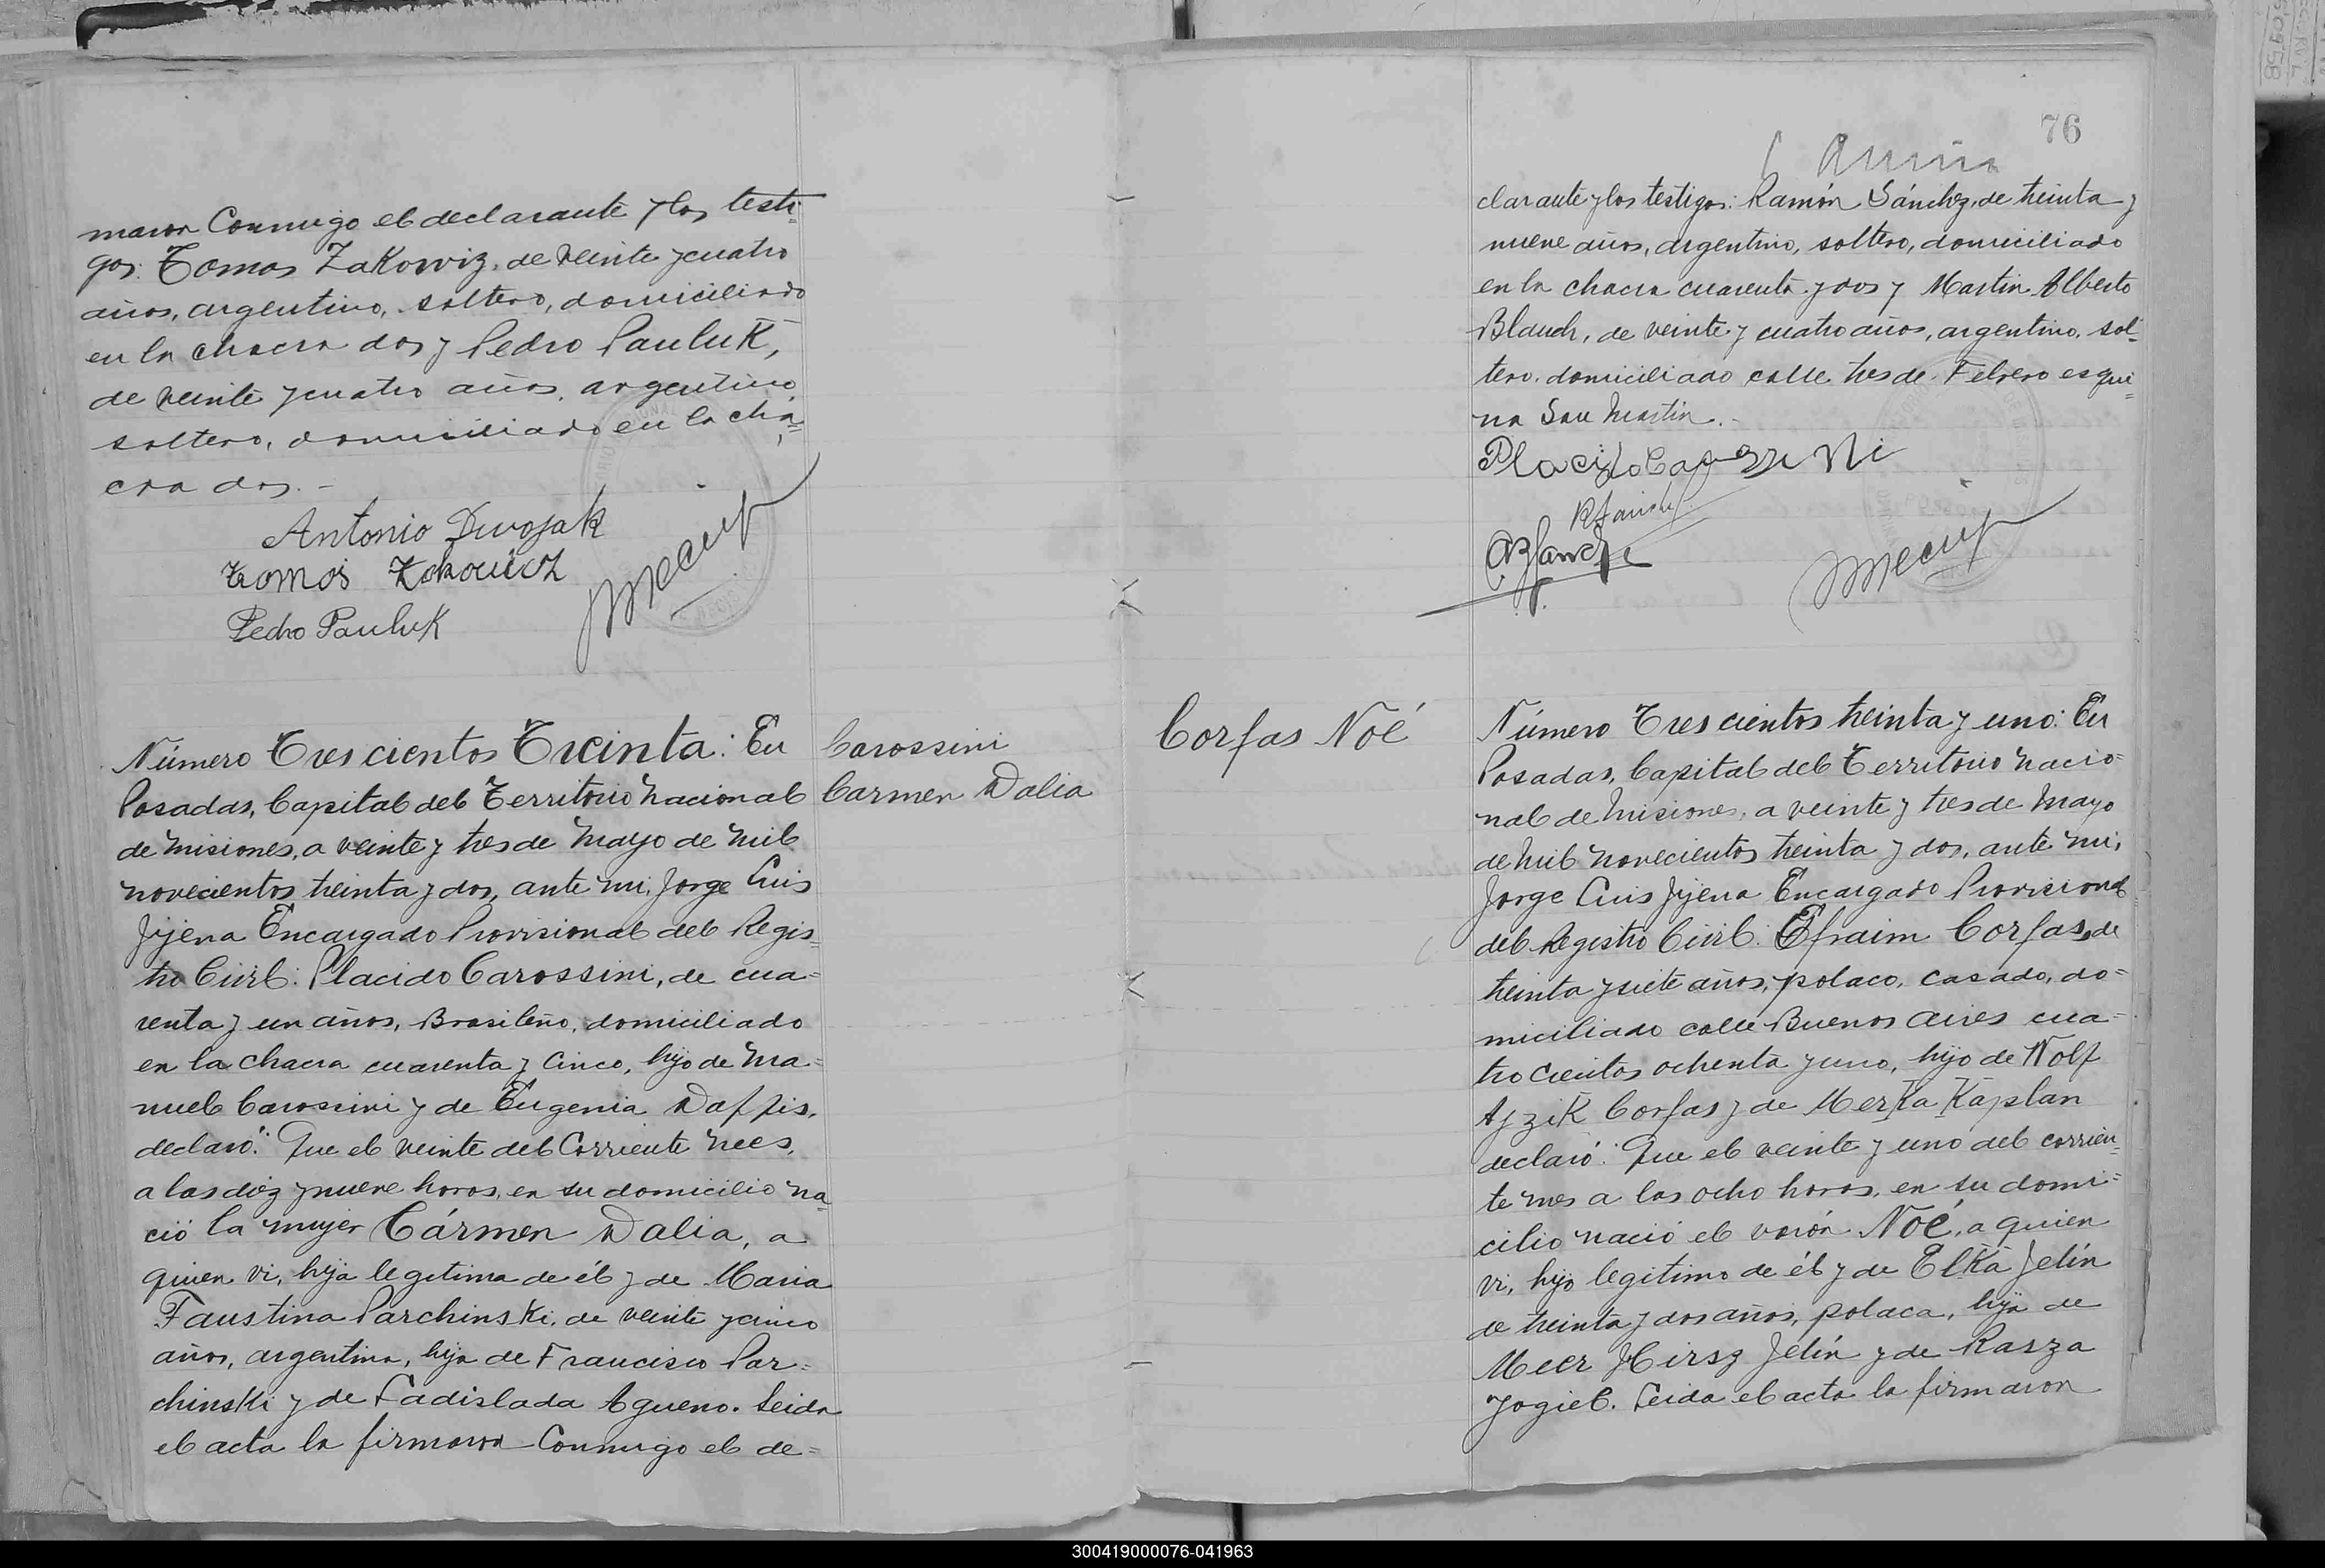 maron Conmigo el declarante y los testi=
gos: Tomas Zakowiz, de veinte y cuatro
años, argentino, soltero, domiciliado
en la chacra dos y Pedro Pauluk,
de veinte y cuatro años, argentino,
soltero, domiciliado en la cha=
cra dos.-
Antonio Dwojak
Tomós Zakowicz
Pedro Pauluk
Número Trescientos Treinta: En
Posadas, Capital del Territorio Nacional
de Misiones, a veinte y tres de Mayo de Mil
novecientos treinta y dos, ante mi, Jorge Luis
Jijena Encargado Provisional del Regis=
tro Civil: Placido Carossini, de cua=
renta y un años, Brasileño, domiciliado
en la chacra cuarenta y cinco, hijo de Ma=
nuel Carossini y de Eugenia Daffis,
declaró: Que el veinte del Corriente mes,
a las diez y nueve horas, en su domicilio na=
ció la mujer Cármen Dalia, a
quien vi, hija legitima de él y de Maria
Faustina Parchinski, de veinte y cinco
años, argentina, hija de Francisco Par=
chinski y de Ladislada Agueno. Leida
el acta la firmaron Conmigo el de=
Carossini
Carmen Dalia
76
clarante y los testigos: Ramón Sánchez, de treinta y
nueve años, argentino, soltero, domiciliado
en la chacra cuarenta y dos y Martin Alberto
Blauch, de veinte y cuatro años, argentino, sol=
tero, domiciliado calle tres de Febrero esqui=
na San Martin.-
Placido Carossini
Corfas Noé
Número Trescientos treinta y uno: En
Posadas, Capital del Territorio Nacio=
nal de Misiones, a veinte y tres de Mayo
de Mil novecientos treinta y dos, ante mi,
Jorge Luis Jijena Encargado Provisional
del Registro Civil: Efraim Corfas, de
treinta y siete años, polaco, casado, do=
miciliado calle Buenos Aires cua=
trocientos ochenta y uno, hijo de Wolf
Ajzik Corfas y de Merka Kaplan
declaró: Que el veinte y uno del corrien=
te mes a las ocho horas, en su domi=
cilio nació el varón Noé, a quien
vi, hijo legitimo de él y de Elka Jelín
de treinta y dos años, polaca, hija de
Meer Hirsz Jelín y de Rasza
Jogiel. Leida el acta la firmaron
300419000076-041963